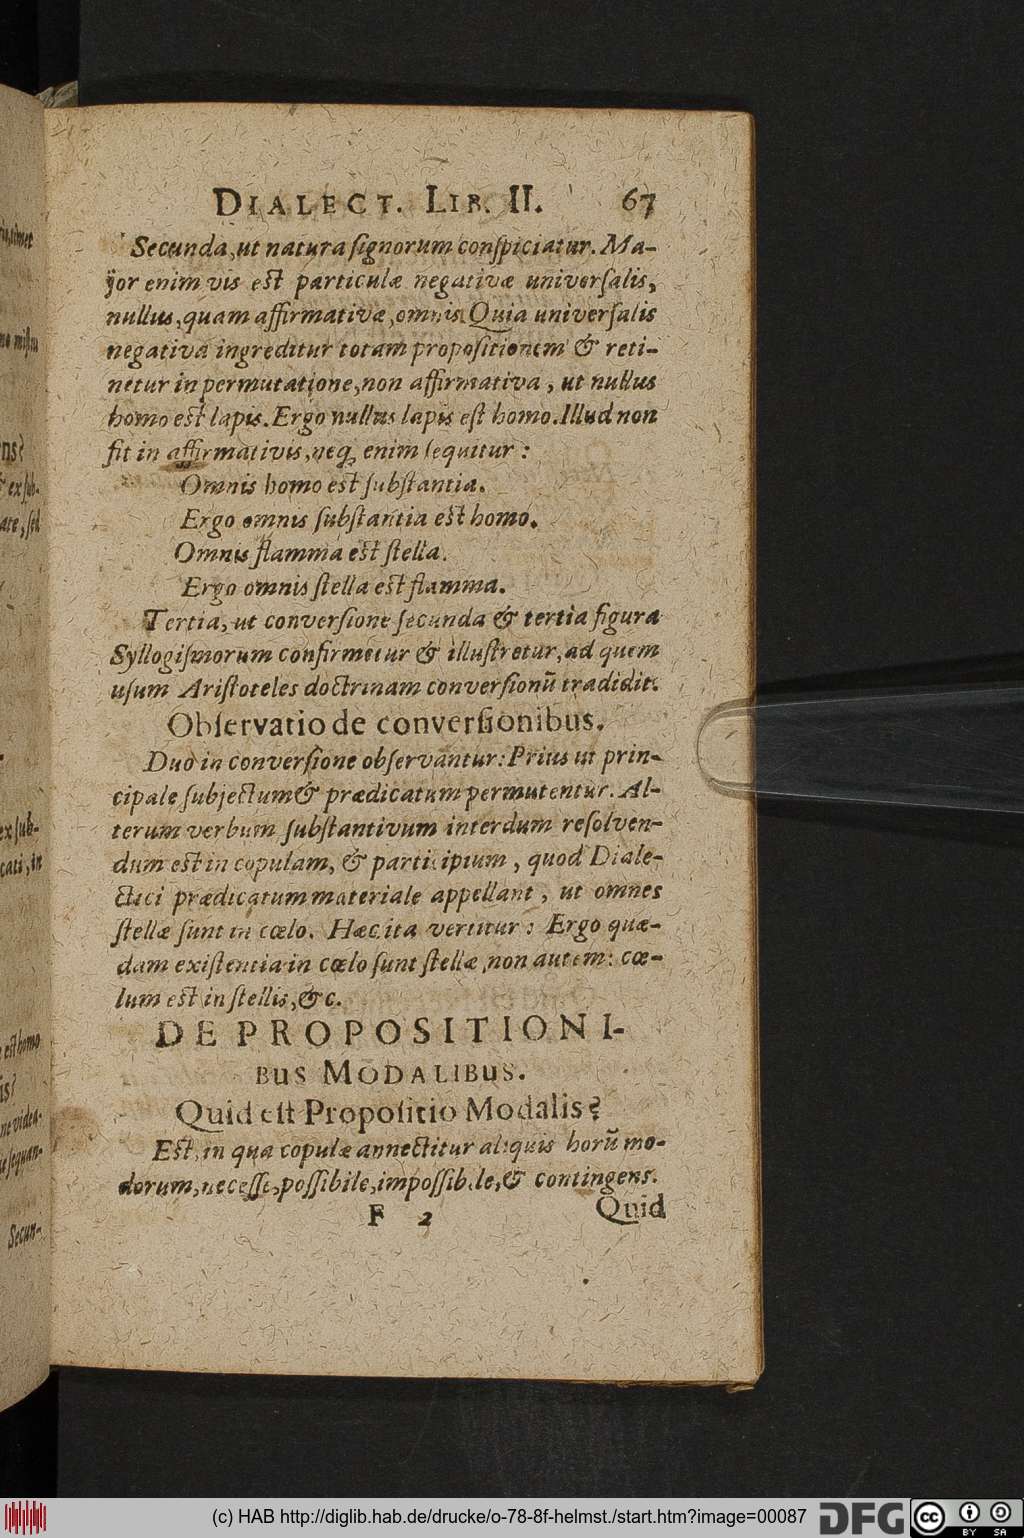 DIALECT. LIB. II. 67
Secunda, ut natura ſignorum conſpiciatur. Ma-
ijor enim vis est particulæ negativæ univerſalis,
nullus, quam affirmativæ, omnis. Quia univerſalis
negativa ingreditur totam propoſitionem & reti-
netur in permutatione, non affirmativa, ut nullus
homo est lapis. Ergo nullus lapis eſt homo. Illud non
fit in affirmativis, neq; enim ſequitur:
Omnis homo est ſubſtantia.
Ergo omnis ſubſtantia est homo.
Omnis flamma est ſtella.
Ergo omnis ſtella est flamma.
Tertia, ut converſione ſecunda & tertia figura
Syllogiſmorum confirmetur & illuſtretur, ad quem
uſum Ariſtoteles doctrinam converſionū tradidit.
Obſervatio de converſionibus.
Duo in converſione obſervantur: Prius ut prin-
cipale ſubjectum & prædicatum permutentur. Al-
terum verbum ſubſtantivum interdum reſolven-
dum est in copulam, & participium, quod Diale-
ctici prædicatum materiale appellant, ut omnes
ſtellæ ſunt in cœlo. Hæc ita vertitur: Ergo quæ-
dam exiſtentia in cœlo ſunt ſtellæ, non autem: cœ-
lum est in ſtellis, &c.
DE PROPOSITIONI-
BUS MODALIBUS.
Quid eſt Propoſitio Modalis?
Est, in qua copulæ annectitur aliquis horū mo-
dorum, neceſſe, poſſibile, impoſſibile, & contingens.
F 2 Quid
(c) HAB http://diglib.hab.de/drucke/o-78-8f-helmst./start.htm?image=00087
DFG
cc
BY SA